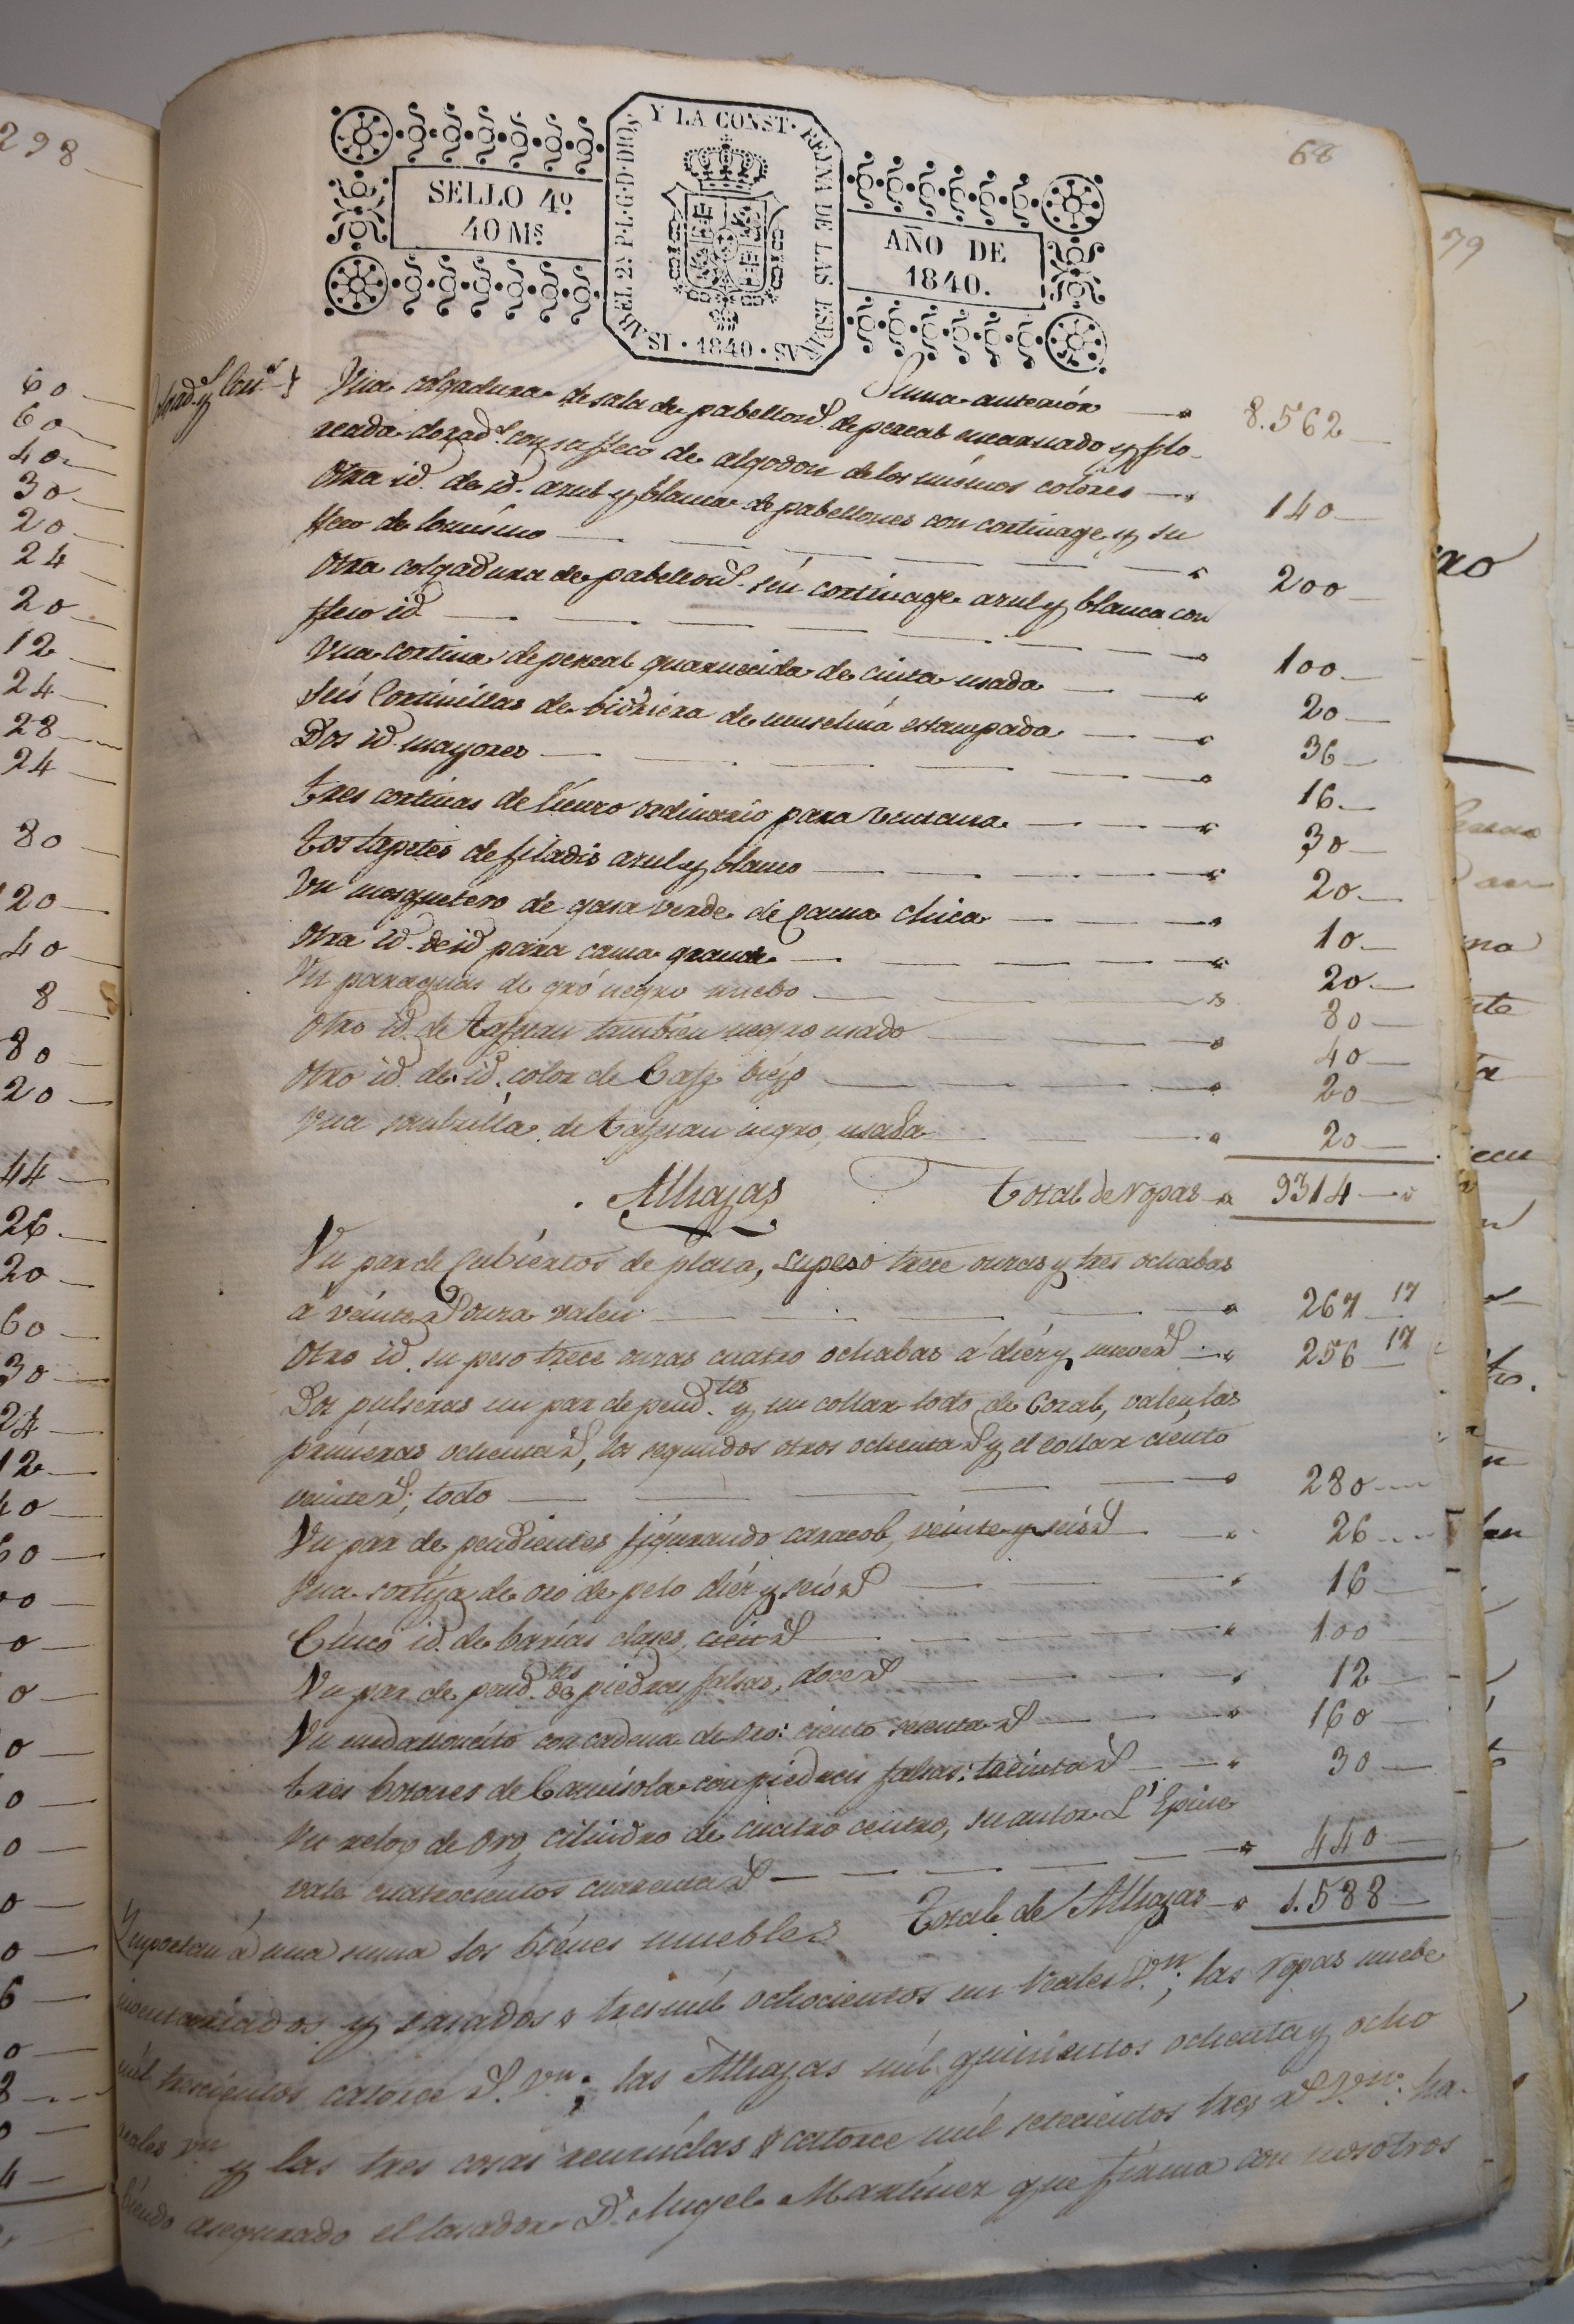 298
68
79
SELLO 4º
40 Mˢ
ISABEL 2ª P.L.G.D.DIOS Y LA CONST. REYNA DE LAS ESPAÑAS
· 1840 ·
AÑO DE
1840.
Suma anterior 8.562
Una colgadura de sala de pabellons. de percal encarnado y flo-
reada con su fleco de algodon de los mismos colores 140
Otra id. de id. azul y blanca de pabellones con cortinage y su
fleco de lo mismo 200
Otra colgadura de pabellons. sin cortinage azul y blanca con
fleco id 100
Una cortina de percal guarnecida de cinta usada 20
Seis Cortinillas de bidriera de muselina estampada 36
Dos id. mayores 16
Tres cortinas de lienzo ordinario para ventana 30
Dos tapetes de filadis azul y blanco 20
Un mosquetero de gasa verde de cama chica 10
Otra id. de id para cama grande 20
Un paraguas de gró negro nuebo 80
Otro id. de tafetan tambien negro usado 40
Otro id. de id. color de Cafe biejo 20
Una sombrilla de tafetan negro, usada 20
Total de ropas 9314
Alhajas
Un par de Cubiertos de plata, su peso trece onzas y tres ochabas
á veinte rs onza valen 267 17
Otro id. su peso trece onzas cuatro ochabas á diez y nueve rs 256 17
Dos pulseras un par de pend.tes y un collar todo de Coral, valen las
primeras ochenta rs, los segundos otros ochenta rs y el collar ciento
veinte rs; todo 280
Un par de pendientes figurando caracol, veinte y seis rs 26
Una sortija de oro de pelo diez y seis rs 16
Cinco id. de barias clases, cien rs 100
Un par de pend.tes de piedras falsas, doce rs 12
Un medalloncito con cadena de oro: ciento sesenta rs 160
Tres botones de Camisola con piedras falsas: treinta rs 30
Un relox de oro, cilindro de cuatro centro, su autor L'Epine
vale cuatrocientos cuarenta rs 440
Total de Alhajas 1.588
Ymportan á una suma los bienes muebles
inventariados y tasados tres mil ochocientos un reales Vn.; las ropas nuebe
mil trescientos catorce rs. Vn.; las Alhajas mil quinientos ochenta y ocho
reales vn y las tres cosas reunidas catorce mil setecientos tres rs Vn. ha-
biendo asegurado el tasador Dn. Angel Martinez que firma con nosotros